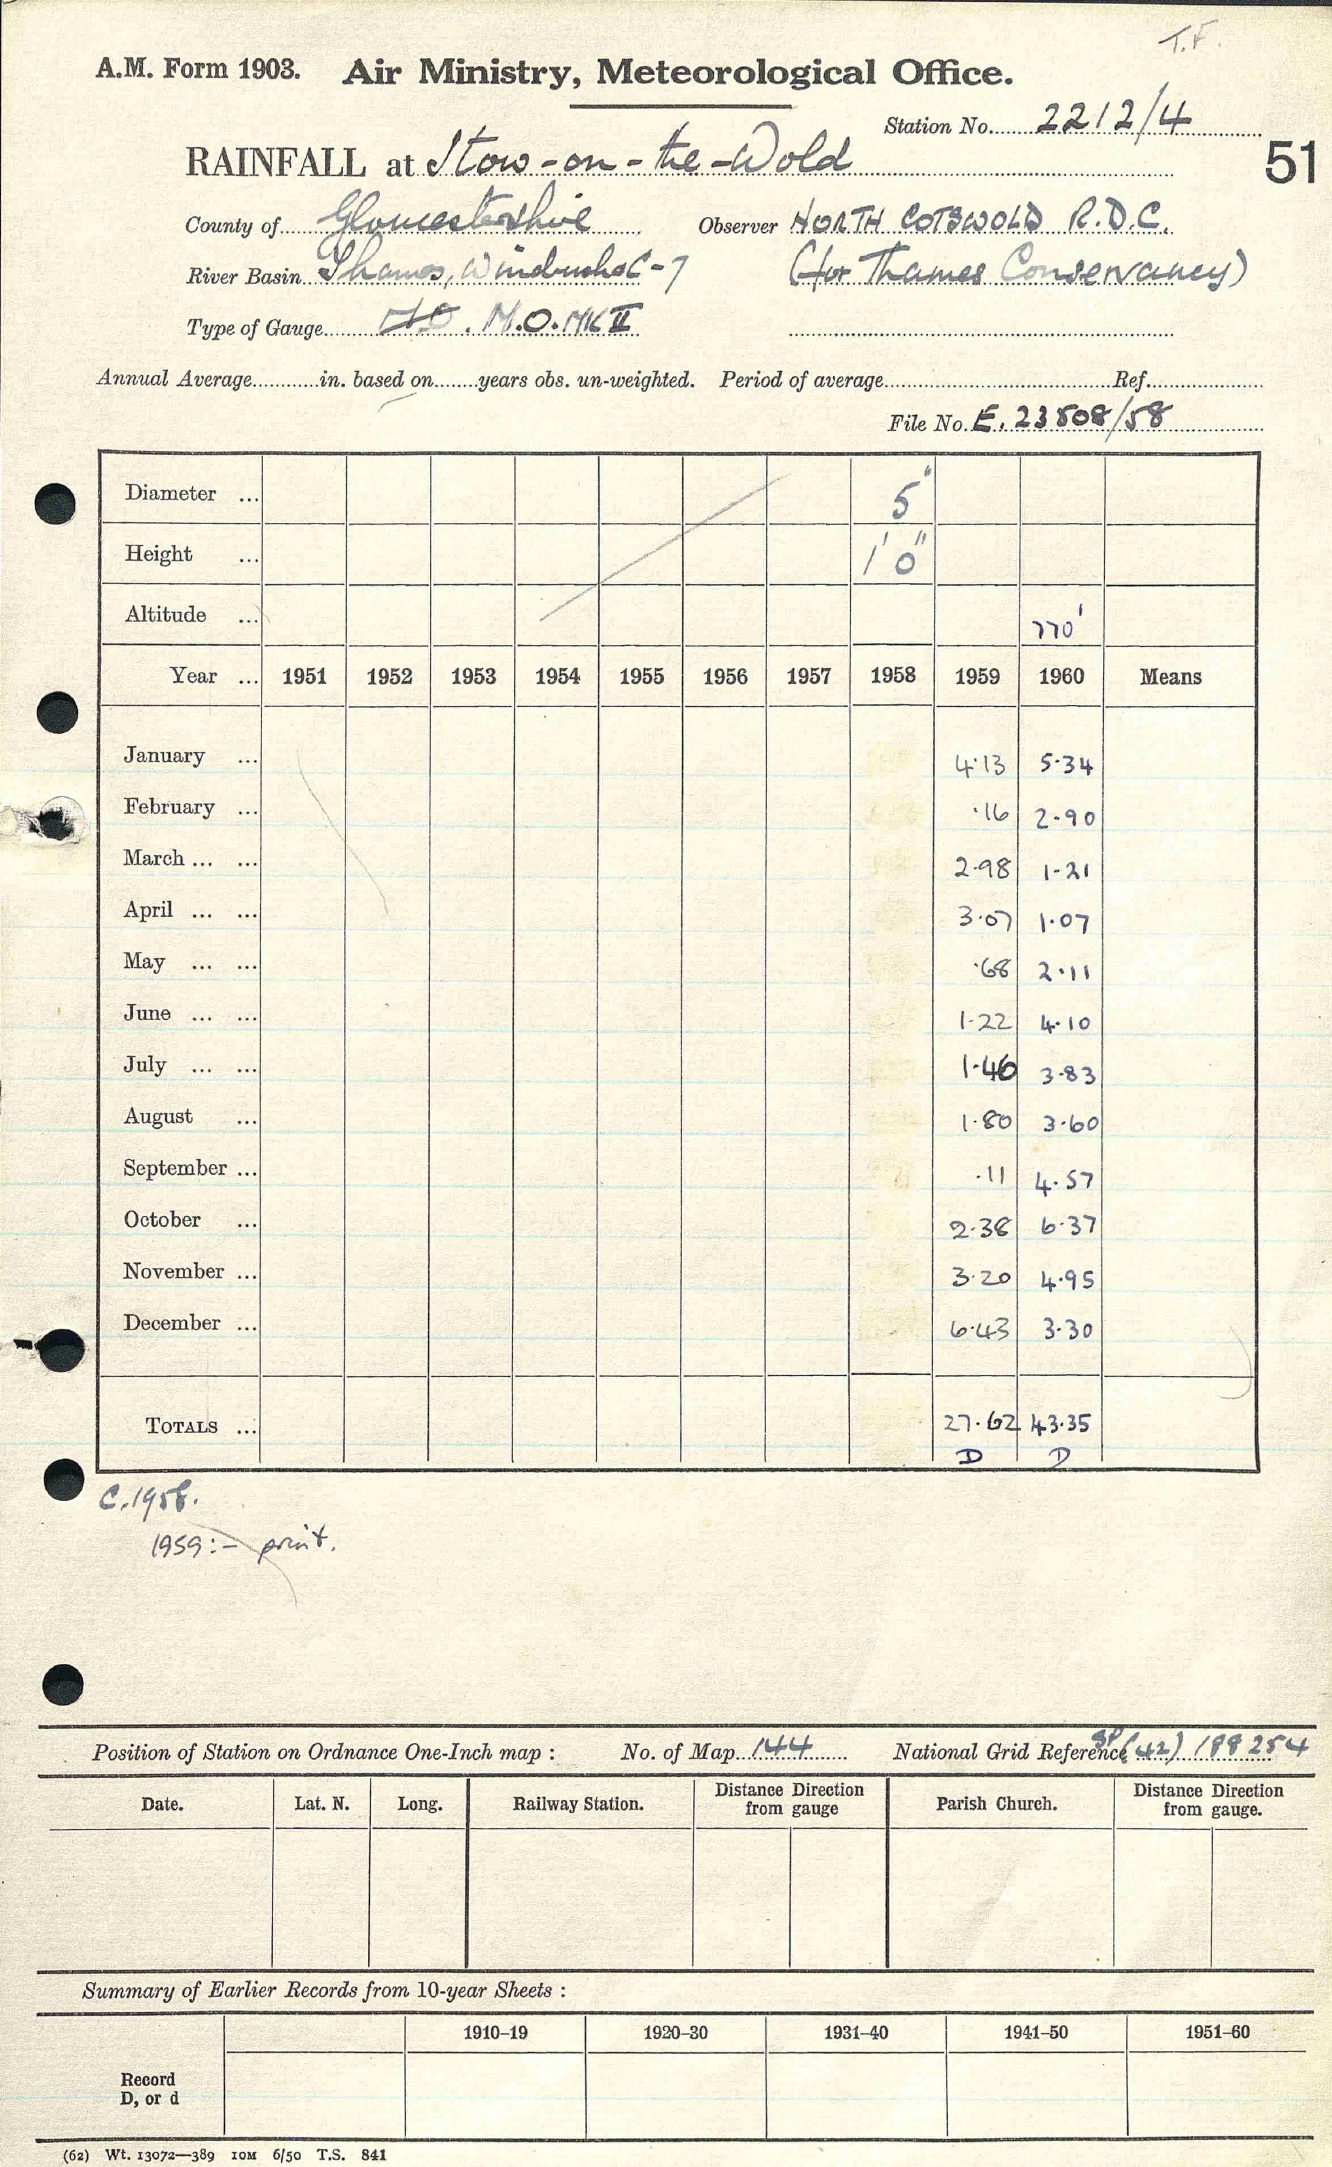 T.F.
A.M. Form 1903. Air Ministry, Meteorological Office.
Station No. 2212/4
RAINFALL at Stow-on-the-Wold
51
County of Gloucestershire Observer NORTH COTSWOLD R.D.C.
River Basin Thames, Windrush (for Thames Conservancy)
Type of Gauge M.O. MK II
Annual Average in. based on years obs. un-weighted. Period of average Ref.
File No. E. 23508/58
Diameter ... 5"
Height ... 1' 0"
Altitude ... 770'
Year ... 1951 1952 1953 1954 1955 1956 1957 1958 1959 1960 Means
January ... 4.13 5.34
February ... .16 2.90
March ... ... 2.98 1.21
April ... ... 3.07 1.07
May ... ... .68 2.11
June ... ... 1.22 4.10
July ... ... 1.46 3.83
August ... 1.80 3.60
September ... .11 4.57
October ... 2.38 6.37
November ... 3.20 4.95
December ... 6.43 3.30
TOTALS ... 27.62 43.35
D D
C.1958.
1959:- print.
Position of Station on Ordnance One-Inch map : No. of Map 144 National Grid Reference SP(42) 188254
Date. Lat. N. Long. Railway Station. Distance Direction from gauge Parish Church. Distance Direction from gauge.
Summary of Earlier Records from 10-year Sheets :
1910–19 1920–30 1931–40 1941–50 1951–60
Record
D, or d
(62) Wt. 13072—389 10M 6/50 T.S. 841